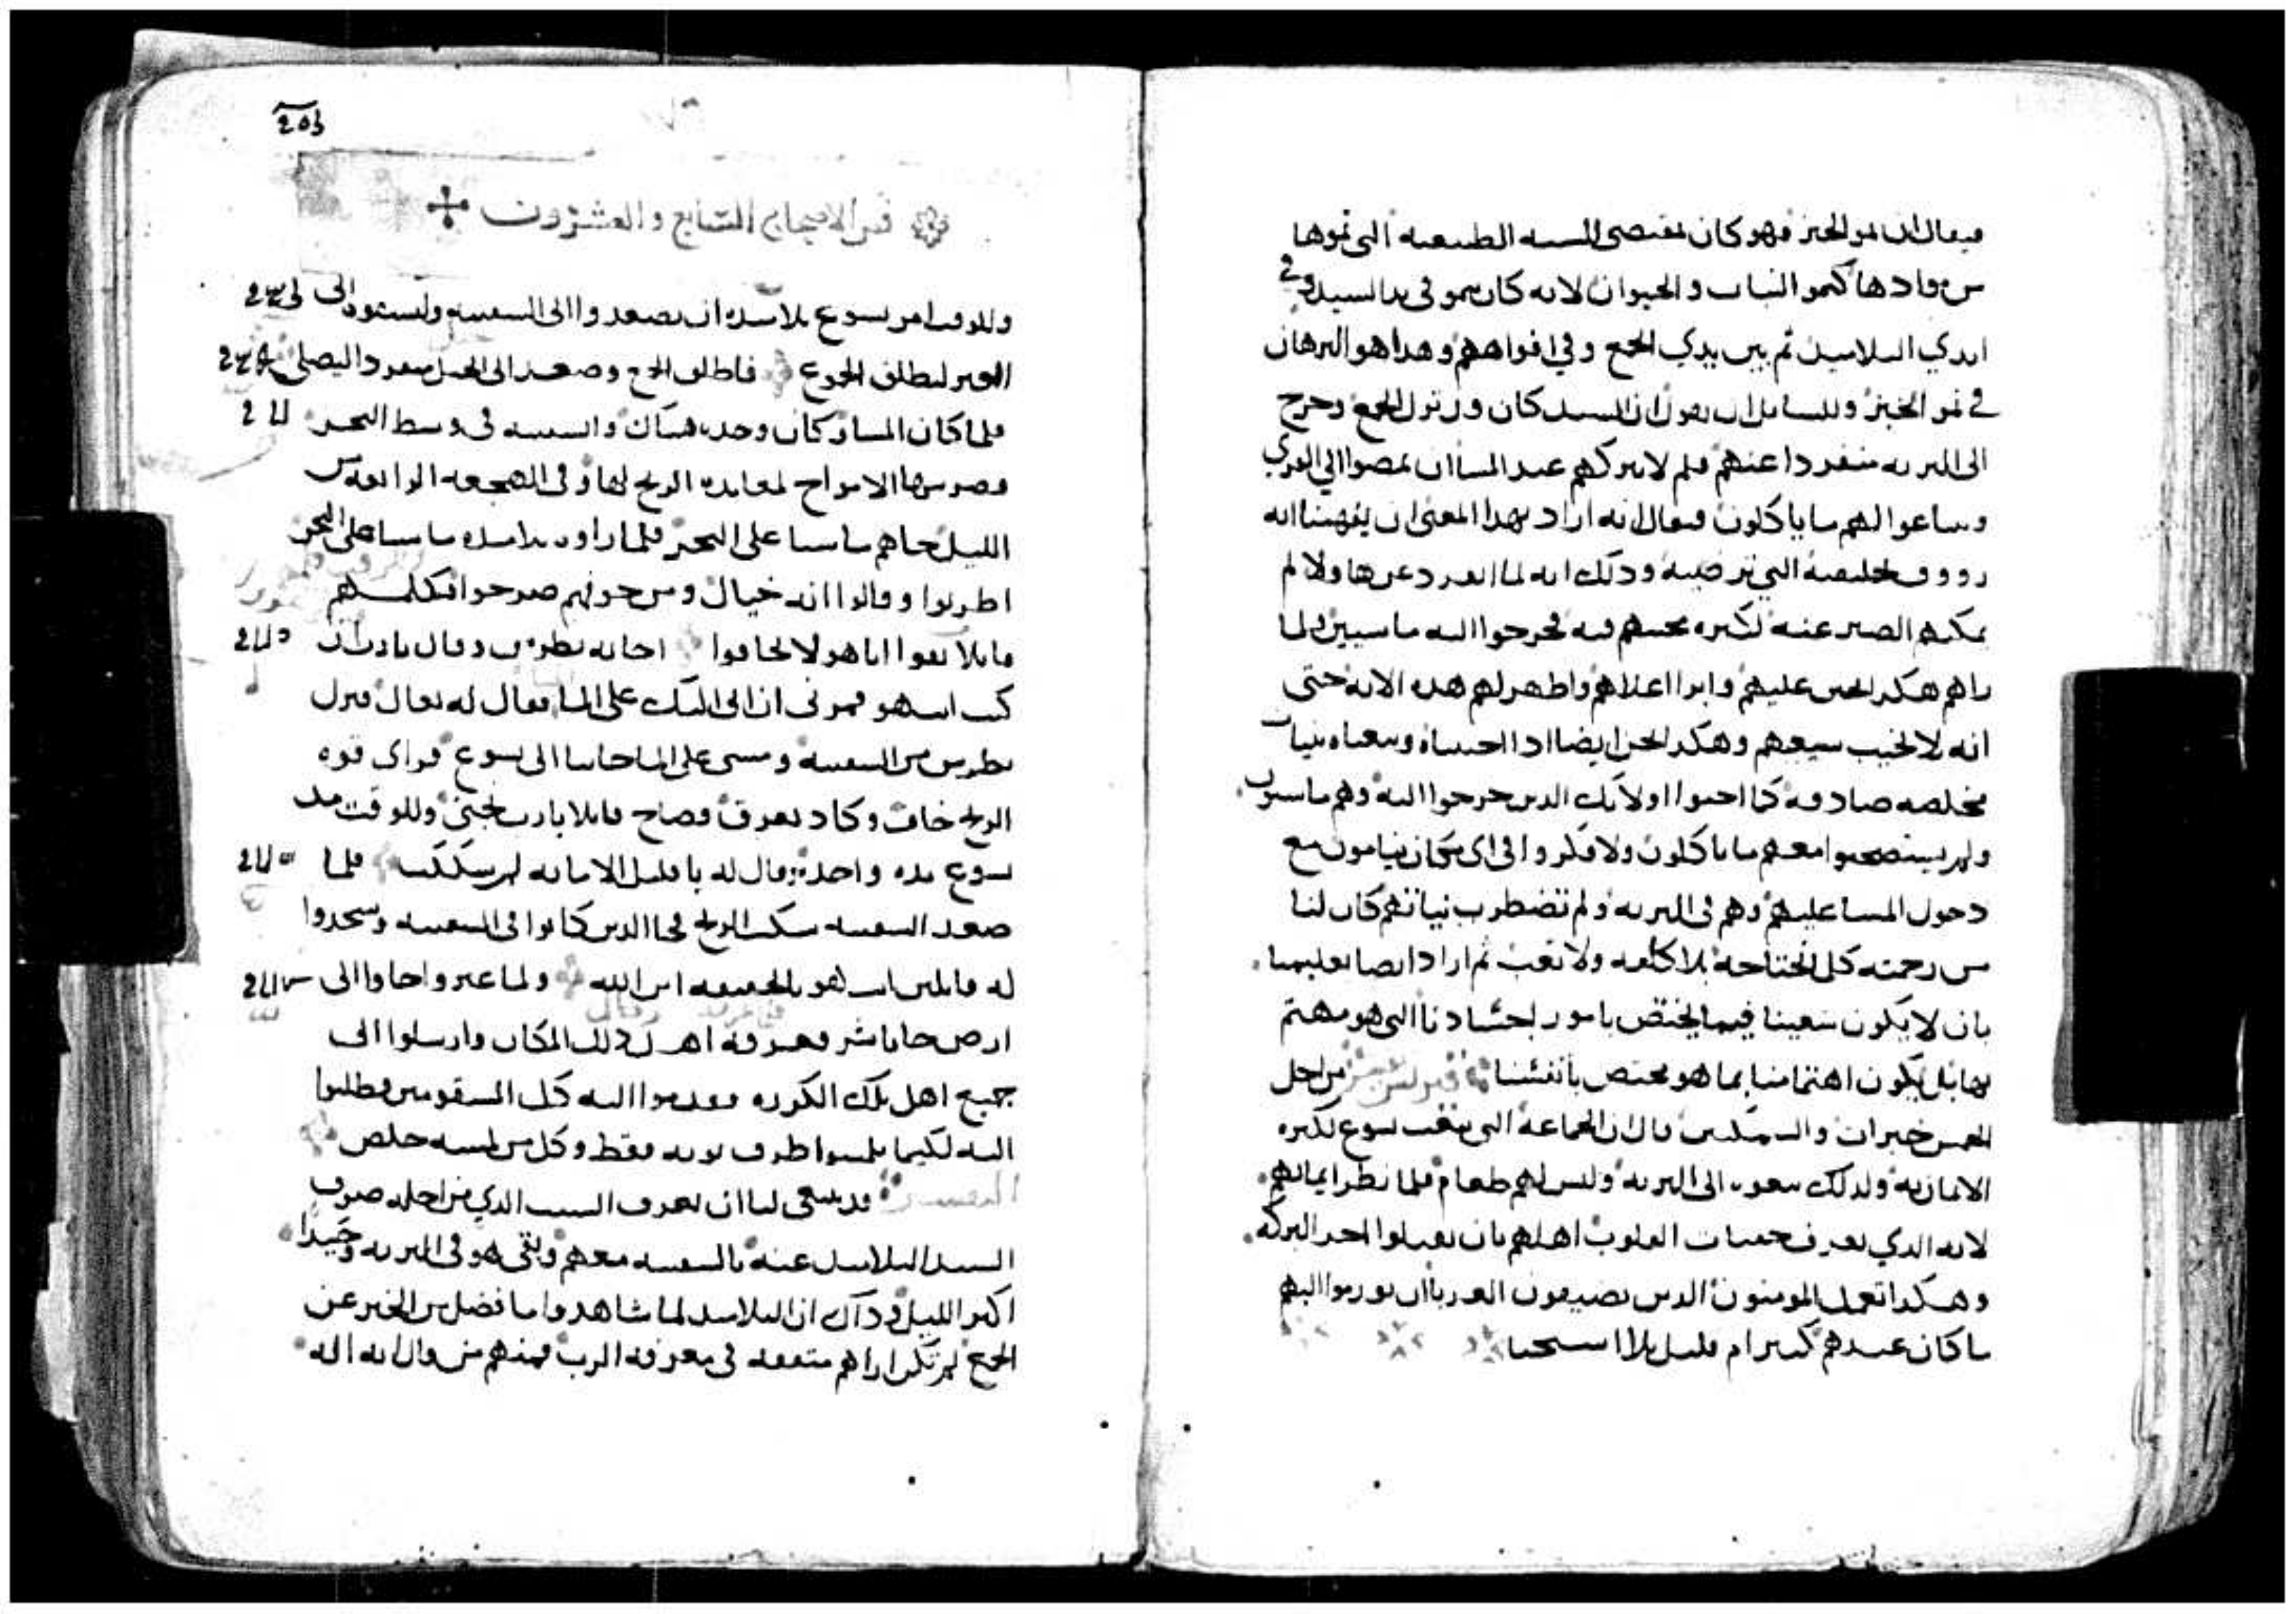 فيقال ان نمو الخبز فهو كان بمقتضى النسبه الطبيعيه التى نموها
من موادها كنمو النبات والحيوان لانه كان ينمو فى يد السيد وفى
ايدي التلاميذ ثم بين يدي الجمع وفي افواههم وهذا هو البرهان
في نمو الخبز وللسايل ان يقول ان السيد كان ورتزل الجمع وخرج
الى البريه منفردا عنهم فلم لا يتركهم عند المسا ان يمضوا الي القري
ويبتاعوا لهم ما ياكلون فيقال انه اراد بهذا المعنى ان يفهمنا انه
رووف بخليقته التي ترضيه وذلك انه لما انفرد عنها ولا لم
يمكنهم الصبر عنه لكثره محبتهم فيه فخرجوا اليه ماشيين ولما
راهم هكذا تحنن عليهم وابرا اعلاهم واظهر لهم هذه الايه حتى
انه لا يخيب سعيهم وهكذا نحن ايضا اذا احببناه وتبعناه بنيات
مخلصه صادقه كما احبوا اولايك الدين خرجوا اليه وهم ماشيون
ولم يستصحبوا معهم ما ياكلون ولا فكروا فى اى مكان ينامون مع
دخول المسا عليهم وهم فى البريه ولم تضطرب نياتهم كان لنا
من رحمته كل نحتاجه بلا كلفه ولا تعب ثم اراد ايضا تعليمنا
بان لا يكون سعينا فيما يختص بامور اجسادنا التى هو مهتم
بها بل يكون اهتمامنا بما هو مختص بانفسنا من اجل
الخمس خبزات والسمكتين قال ان الجماعه التى تبعت يسوع لكثره
الامانه ولذلك تبعوه الى البريه وليس لهم طعام فلما نظر ايمانهم
لانه الذي يعرف خفيات القلوب اهلهم بان يقبلوا اخد البركه
وهكذا تفعل المومنون الدين يضيفون الغربا ان يقدموا اليهم
ما كان عندهم كثير ام قليل بلا استحيا
203
فص الاصحاح السابع والعشرون
وللوقت امر يسوع تلاميذه ان يصعدوا الى السفينه وليسبقوه الى
العبر ليطلق الجموع فاطلق الجمع وصعد الى الجبل منفردا ليصلي
فلما كان المسا وكان وحده هناك والسفينه فى وسط البحر
وضربتها الامواج لمعانده الريح لها وفى الهجعه الرابعه من
الليل جاهم ماشيا على البحر فلما راوه تلاميذه ماشيا على البحر
اضطربوا وقالوا انه خيال ومن خوفهم صرخوا فكلمهم
قايلا ثقوا انا هو لا تخافوا اجابه بطرس وقال يا رب ان
كنت انت هو فمرنى ان اتى اليك على الما فقال له تعال فنزل
بطرس من السفينه ومشى على الما جايا الى يسوع فراى قوه
الريح خاف وكاد يغرق فصاح قايلا يا رب نجنى وللوقت مد
يسوع يده واخده وقال له يا قليل الامانه لم شككت فلما
صعد السفينه سكت الريح فجا الدين كانوا فى السفينه وسجدوا
له قايلين انت هو بالحقيقه ابن الله ولما عبروا جاوا الى
ارض جاناشر فعرفه اهل ذلك المكان وارسلوا الى
جميع اهل تلك الكوره فقدموا اليه كل المسقومين وطلبوا
اليه لكيما يلمسوا طرف ثوبه فقط وكل من لمسه خلص
التفسير قد ينبغى لنا ان نعرف السبب الذي من اجله صرف
السيد التلاميذ عنه بالسفينه معهم وبقى هو فى البريه وحيدا
اكثر الليل وذلك ان التلاميذ لما شاهدوا ما فضل من الخبز عن
الجمع لم تكن اراهم متفقه فى معرفه الرب فمنهم من قال انه اله